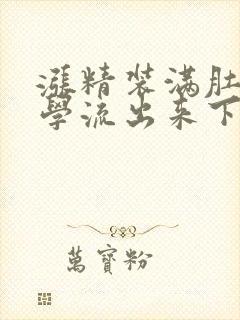 漲精装满肚
學流出来下
萬寶粉